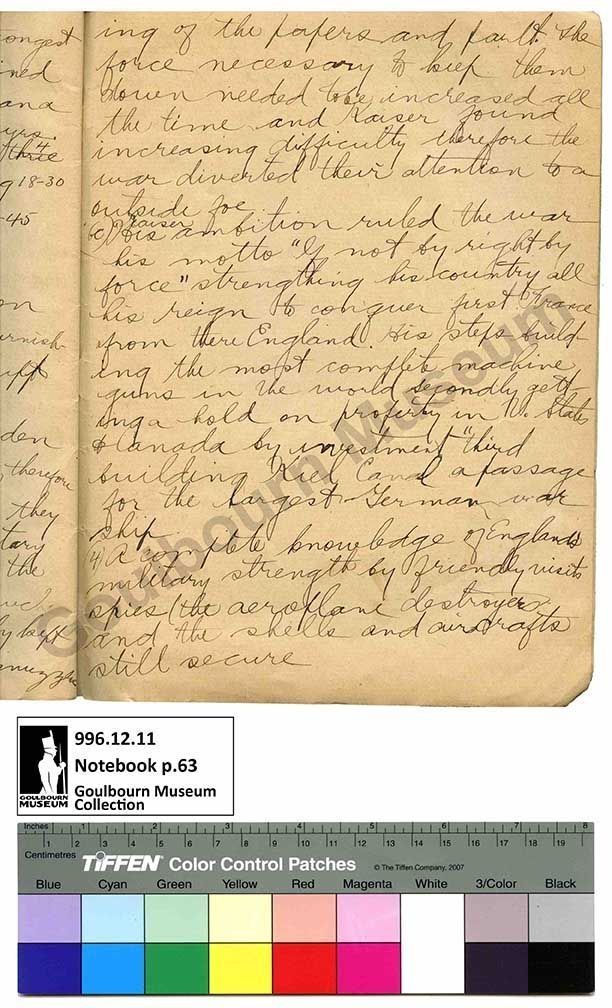 ongest
ined
and
yrs.
thrite
g 18-30
-45
on
urnish-
den
therefore
they
tary
the
by kept
muzzle
ing of the papers and parl't. The
force necessary to keep them
down needed to be increased all
the time and Kaiser found
increasing difficulty therefore the
war diverted their attention to a
outside foe.
(c) Kaiser His ambition ruled the war
his motto "If not by right by
force" strengthing his country all
his reign to conquer first to France
from there England. His steps build-
ing the most complete machine
guns in the world secondly gett-
ing a hold on property in U. States
& Canada by investment "third
building Kiel Canal a passage
for the largest German war
ship
(4) A complete knowledge of England's
military strength by friendly visits
spies (the aeroplane destroyer
and the shells and aircrafts
still secure
Goulbourn Museum
996.12.11
Notebook p.63
Goulbourn Museum
Collection
GOULBOURN
MUSEUM
Inches 1 2 3 4 5 6 7 8
Centimetres 1 2 3 4 5 6 7 8 9 10 11 12 13 14 15 16 17 18 19
TIFFEN Color Control Patches © The Tiffen Company, 2007
Blue Cyan Green Yellow Red Magenta White 3/Color Black